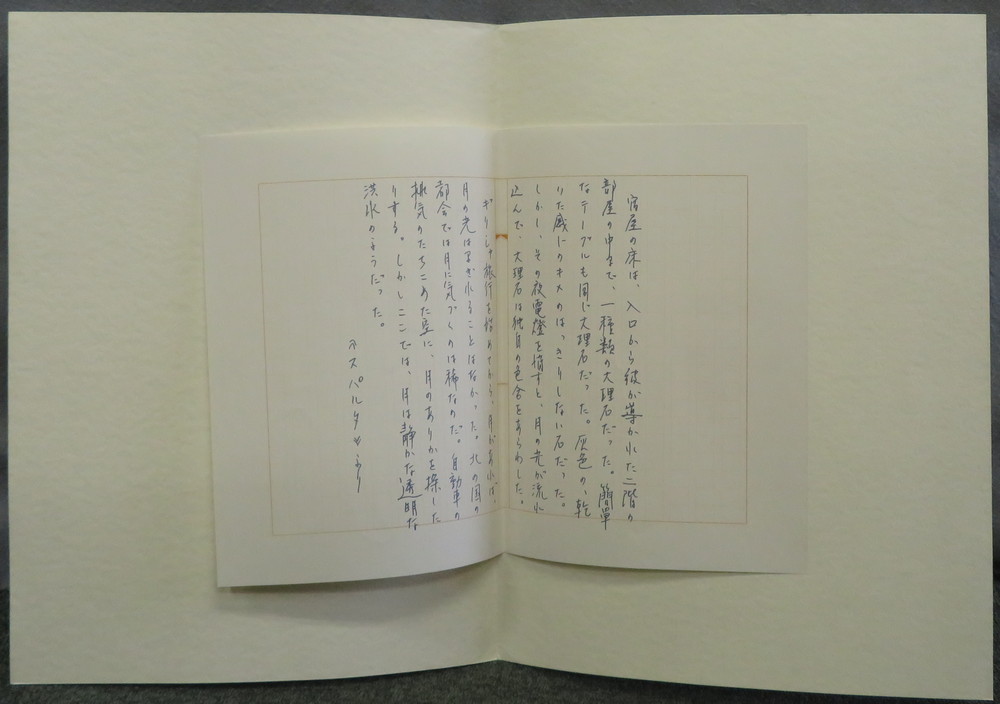 宿屋の床は、入口から彼が導かれた二階の
部屋の中まで、一種類の大理石だった。簡単
なテーブルも同じ大理石だった。灰色の、乾
いた感じのキメのはっきりしない石だった。
しかし、その夜電燈を消すと、月の光が流れ
込んで、大理石は独自の色合をあらわした。
ギリシャ旅行を始めてから、月があれば、
月の光はまぎれることはなかった。北の国の
都会では月に気づくのは稀なのだ。自動車の
排気のたちこめた空に、月のありかを探した
りする。しかしここでは、月は静かな透明な
洪水のようだった。
スパルタ